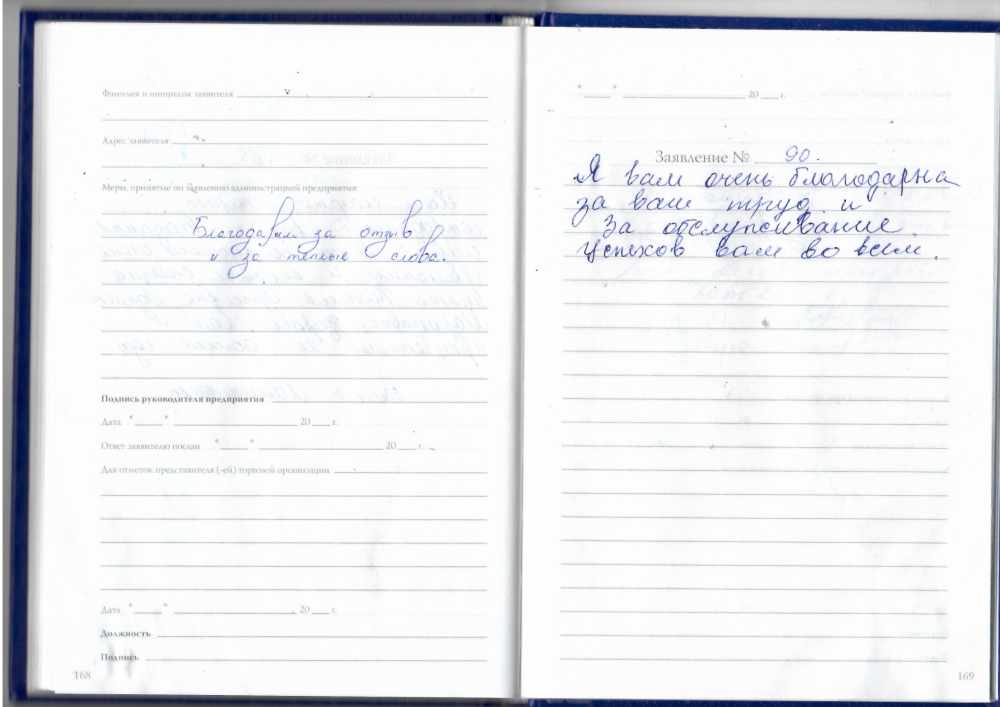 Фамилия и инициалы заявителя
Адрес заявителя
Меры, принятые по заявлению администрацией предприятия:
Благодарим за отзыв
и за теплые слова.
Подпись руководителя предприятия
Дата "___" ___ 20__ г.
Ответ заявителю послан "___" ___ 20__ г.
Для отметок представителя (-ей) торговой организации
Дата "___" ___ 20__ г.
Должность
Подпись
168
"___" ___ 20__ г.
Заявление № 90.
Я вам очень благодарна
за ваш труд и
За обслуживание.
Успехов вам во всем.
169